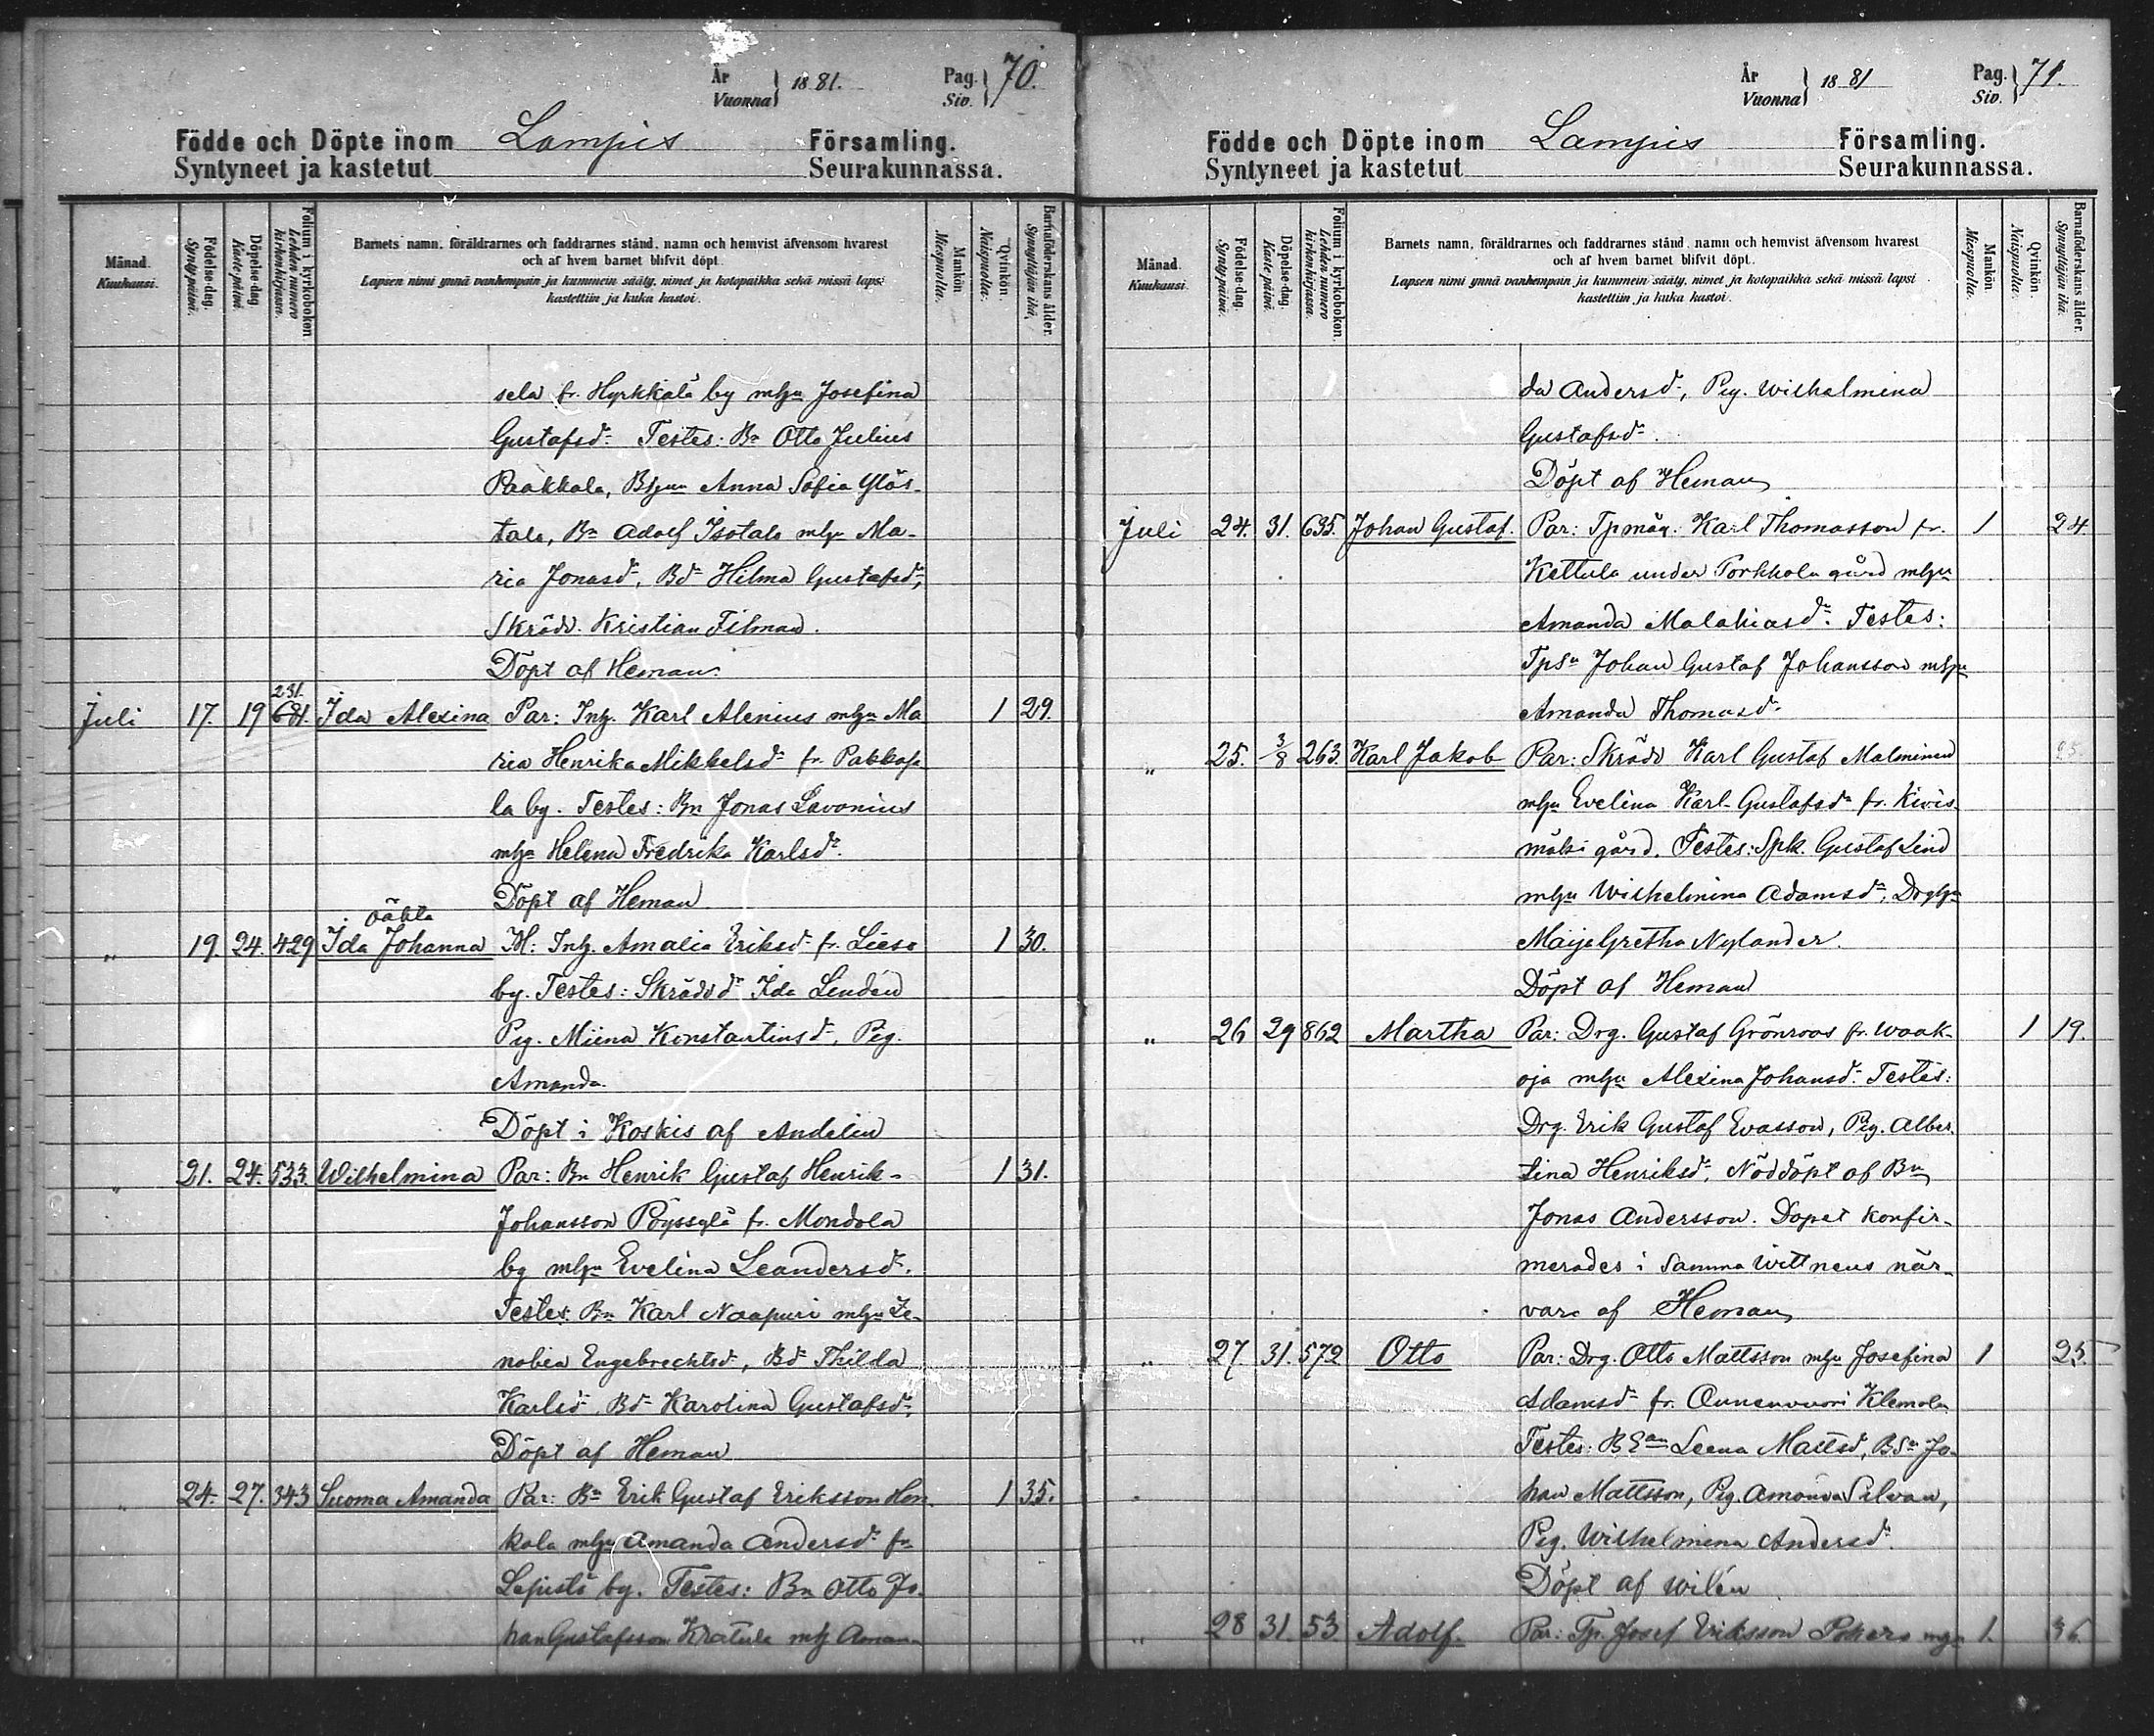 År
Vuonna } 1881.
Pag.
Siv. } 70.
Födde och Döpte inom Lampis Församling.
Syntyneet ja kastetut Seurakunnassa.
Månad.
Kuukausi.
Födelse-dag.
Syntypäivä.
Döpelse-dag.
Kastepäivä.
Folium i kyrkoboken.
Lehden numero kirkonkirjassa.
Barnets namn, föräldrarnes och faddrarnes stånd, namn och hemvist äfvensom hvarest
och af hvem barnet blifvit döpt.
Lapsen nimi ynnä vanhempain ja kummein sääty, nimet ja kotopaikka sekä missä lapsi
kastettiin ja kuka kastoi.
Mankön.
Miespuolta.
Qvinkön.
Naispuolta.
Barnaföderskans ålder.
Synnyttäjän ikä.
sela fr. Hyrkkälä by mhu Josefina
Gustafsdr Testes: Bn Otto Julius
Pääkkala, Bhu Anna Sofia Ylös-
talo, Bn Adolf Isotalo mhu Ma-
ria Jonasdr, Bdr Hilma Gustafsdr,
Skrädd. Kristian Filman.
Döpt af Heman.
Juli 17. 19 231. 681. Ida Alexina Par: Inh. Karl Alenius mhu Ma 1 29.
ria Henrika Mikkelsdr fr. Pakkase
la by. Testes: Bn Jonas Lavonius
mhu Helena Fredrika Karlsdr.
Döpt af Heman
oäkta
„ 19. 24. 429 Ida Johanna M: Inh. Amalia Eriksdr fr. Lieso 1 30.
by. Testes: Skrädddr Ida Lindén
Pig. Miina Konstantinsdr, Pig.
Amanda.
Döpt i Koskis af Andelin
„ 21. 24. 533. Wilhelmina Par: Bn Henrik Gustaf Henrik- 1 31.
Johansson Pöyssylä fr. Mondola
by mhu Evelina Leandersdr.
Testes: Bn Karl Naapuri mhu Ze-
nobia Engebrechtsd, Bdr Thilda
Karlsdr Bdr Karolina Gustafsdr,
Döpt af Heman
„ 24. 27. 343 Suoma Amanda Par: Bn Erik Gustaf Eriksson Hon. 1 35.
kola mhu Amanda Andersdr fr.
Lepistö by. Testes: Bn Otto Jo.
han Gustafsson Kratula mh Aman-
År
Vuonna } 1881
Pag.
Siv. } 71.
Födde och Döpte inom Lampis Församling.
Syntyneet ja kastetut Seurakunnassa.
Månad.
Kuukausi.
Födelse-dag.
Syntypäivä.
Döpelse-dag.
Kastepäivä.
Folium i kyrkoboken.
Lehden numero kirkonkirjassa.
Barnets namn, föräldrarnes och faddrarnes stånd, namn och hemvist äfvensom hvarest
och af hvem barnet blifvit döpt.
Lapsen nimi ynnä vanhempain ja kummein sääty, nimet ja kotopaikka sekä missä lapsi
kastettiin ja kuka kastoi.
Mankön.
Miespuolta.
Qvinkön.
Naispuolta.
Barnaföderskans ålder.
Synnyttäjän ikä.
da Andersdr, Pig. Wilhelmina
Gustafsdr.
Döpt af Heman
Juli 24. 31. 635. Johan Gustaf. Par: Tpmåg. Karl Thomasson fr. 1 24.
Kettula under Porkkola gård mhu
Amanda Malakiasdr. Testes:
Tpsn Johan Gustaf Johansson mhu
Amanda Thomasdr.
„ 25. 3/8 263. Karl Jakob Par: Skrädd Karl Gustaf Malminen 25.
mhu Evelina Karl-Gustafsdr fr. Kivis
mälsi gård. Testes: Spk. Gustaf Lind
mhu Wilhelmina Adamsdr, Drghu
Maija Gretha Nylander.
Döpt af Heman
„ 26 29 862 Martha Par: Drg. Gustaf Grönroos fr. Waak- 1 19.
oja mhu Alexina Johansdr. Testes:
Drg. Erik Gustaf Evasson, Pig. Alber.
tina Henriksdr, Nöddöpt af Bn
Jonas Andersson. Dopet konfir-
merades i samma wittnens när-
varo af Heman
„ 27 31. 572 Otto Par: Drg. Otto Mattsson mhu Josefina 1 25.
Adamsdr fr. Onnenvuori Klemola
Testes: BEan Leena Mattsd, BSn Jo-
han Mattsson, Pig. Amanda Silvan,
Pig. Wilhelmina Andersdr.
Döpt af Wilén
„ 28 31. 53. Adolf. Par: Tp. Josef Eriksson mhu 1. 36.